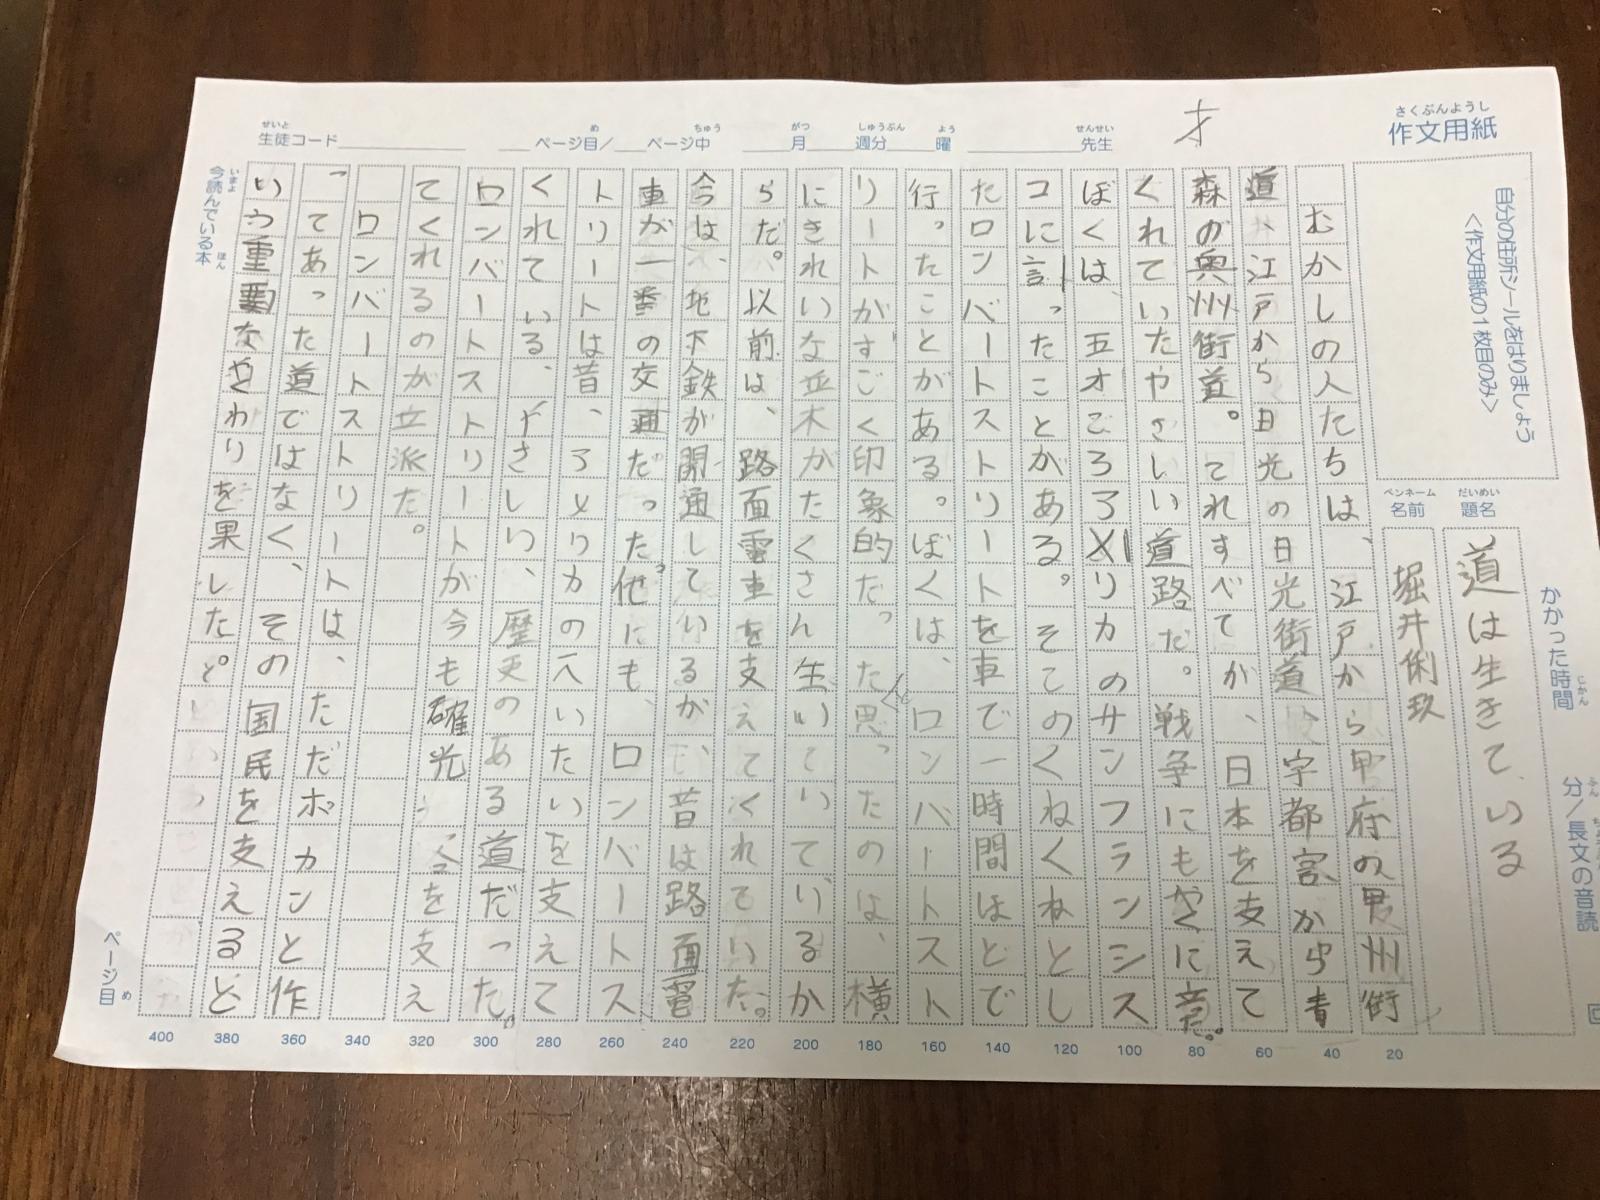 さくぶんようし
作文用紙
自分の住所シールをはりましょう
<作文用紙の1枚目のみ>
かかった時間 じかん
分/長文の音読
だいめい
題名
道は生きている
ペンネーム
名前
堀井俐玖
才
せんせい
先生
よう
曜
しゅうぶん
週分
がつ
月
ちゅう
ページ中
め
ページ目/
せいと
生徒コード
むかしの人たちは、江戸から甲府の甲州街
道、江戸から日光の日光街道、宇都宮から青
森の奥州街道。それすべてが、日本を支えて
くれていたやさしい道路だ。戦争にもやくに立つ。
ぼくは、五才ごろアメリカのサンフランシス
コに言ったことがある。そこのくねくねとし
たロンバートストリートを車で一時間ほどで
行ったことがある。ぼくは、ロンバートスト
リートがすごく印象的だったと思ったのは、横
にきれいな並木がたくさん生いていているか
らだ。以前は、路面電車を支えてくれていた。
今は、地下鉄が開通しているが、昔は路面電
車が一番の交通だった。他にも、ロンバートス
トリートは昔、アメリカの人いたいを支えて
くれている、やさしい、歴史のある道だった。
ロンバートストリートが今も確光 を支え
てくれるのが立派だ。
ロンバートストリートは、ただポカンと作
ってあった道ではなく、その国民を支えると
いう重要なやくわりを果したと。
今読んでいる本 いまよ ほん
ページ目 め
20
40
60
80
100
120
140
160
180
200
220
240
260
280
300
320
340
360
380
400